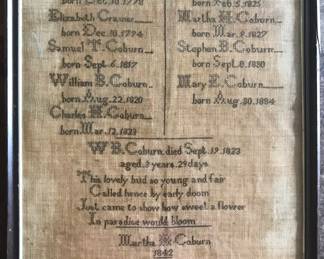 born Dec. 10. 1778
Elizabeth
born Dec. 10. 1794
Samuel T. Coburn
born Sept. 6. 1817
William B. Coburn
born Aug. 22. 1820
Charles H. Coburn
born Mar. 12. 1823
born Feb. 5. 1825
Martha H. Coburn
born Mar. 9. 1827
Stephen B. Coburn
born Sept. 8. 1830
Mary E. Coburn
born Aug. 30. 1834
W B. Coburn. died Sept. 19. 1823
aged. 3 years. 29 days
This lovely bud so young and fair
Called hence by early doom
Just came to show how sweet a flower
In paradise would bloom
Martha H. Coburn
1842